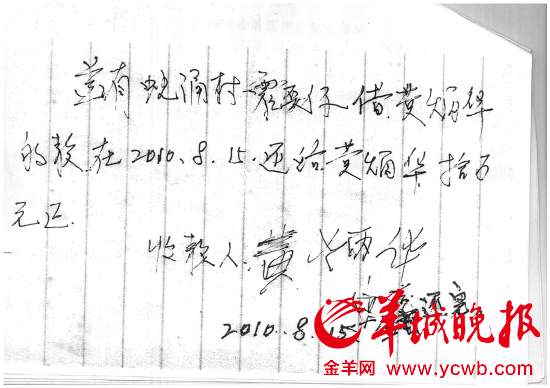 兹有蚬涌村霍要仔借黄炳华
的款在2010.8.15.还给黄炳华拾万
元正.
收款人:黄炳华
2010.8.15
羊城晚报
金羊网 www.ycwb.com